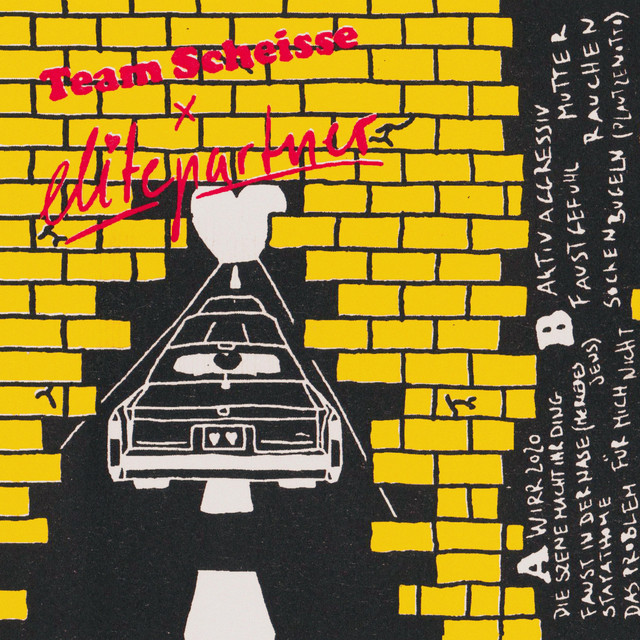 Team Scheisse
x
elitepartner
A WIRR 2020
DIE SZENE MACHT IHR DING
FAUST IN DER NASE (MERCEDES JENS)
STAYATHOME
DAS PROBLEM FÜR MICH NICHT
B AKTIV AGGRESSIV
FAUSTGEFÜHL MUTTER
RAUCHEN
SOCKEN BÜGELN (PLATZENOTTO)